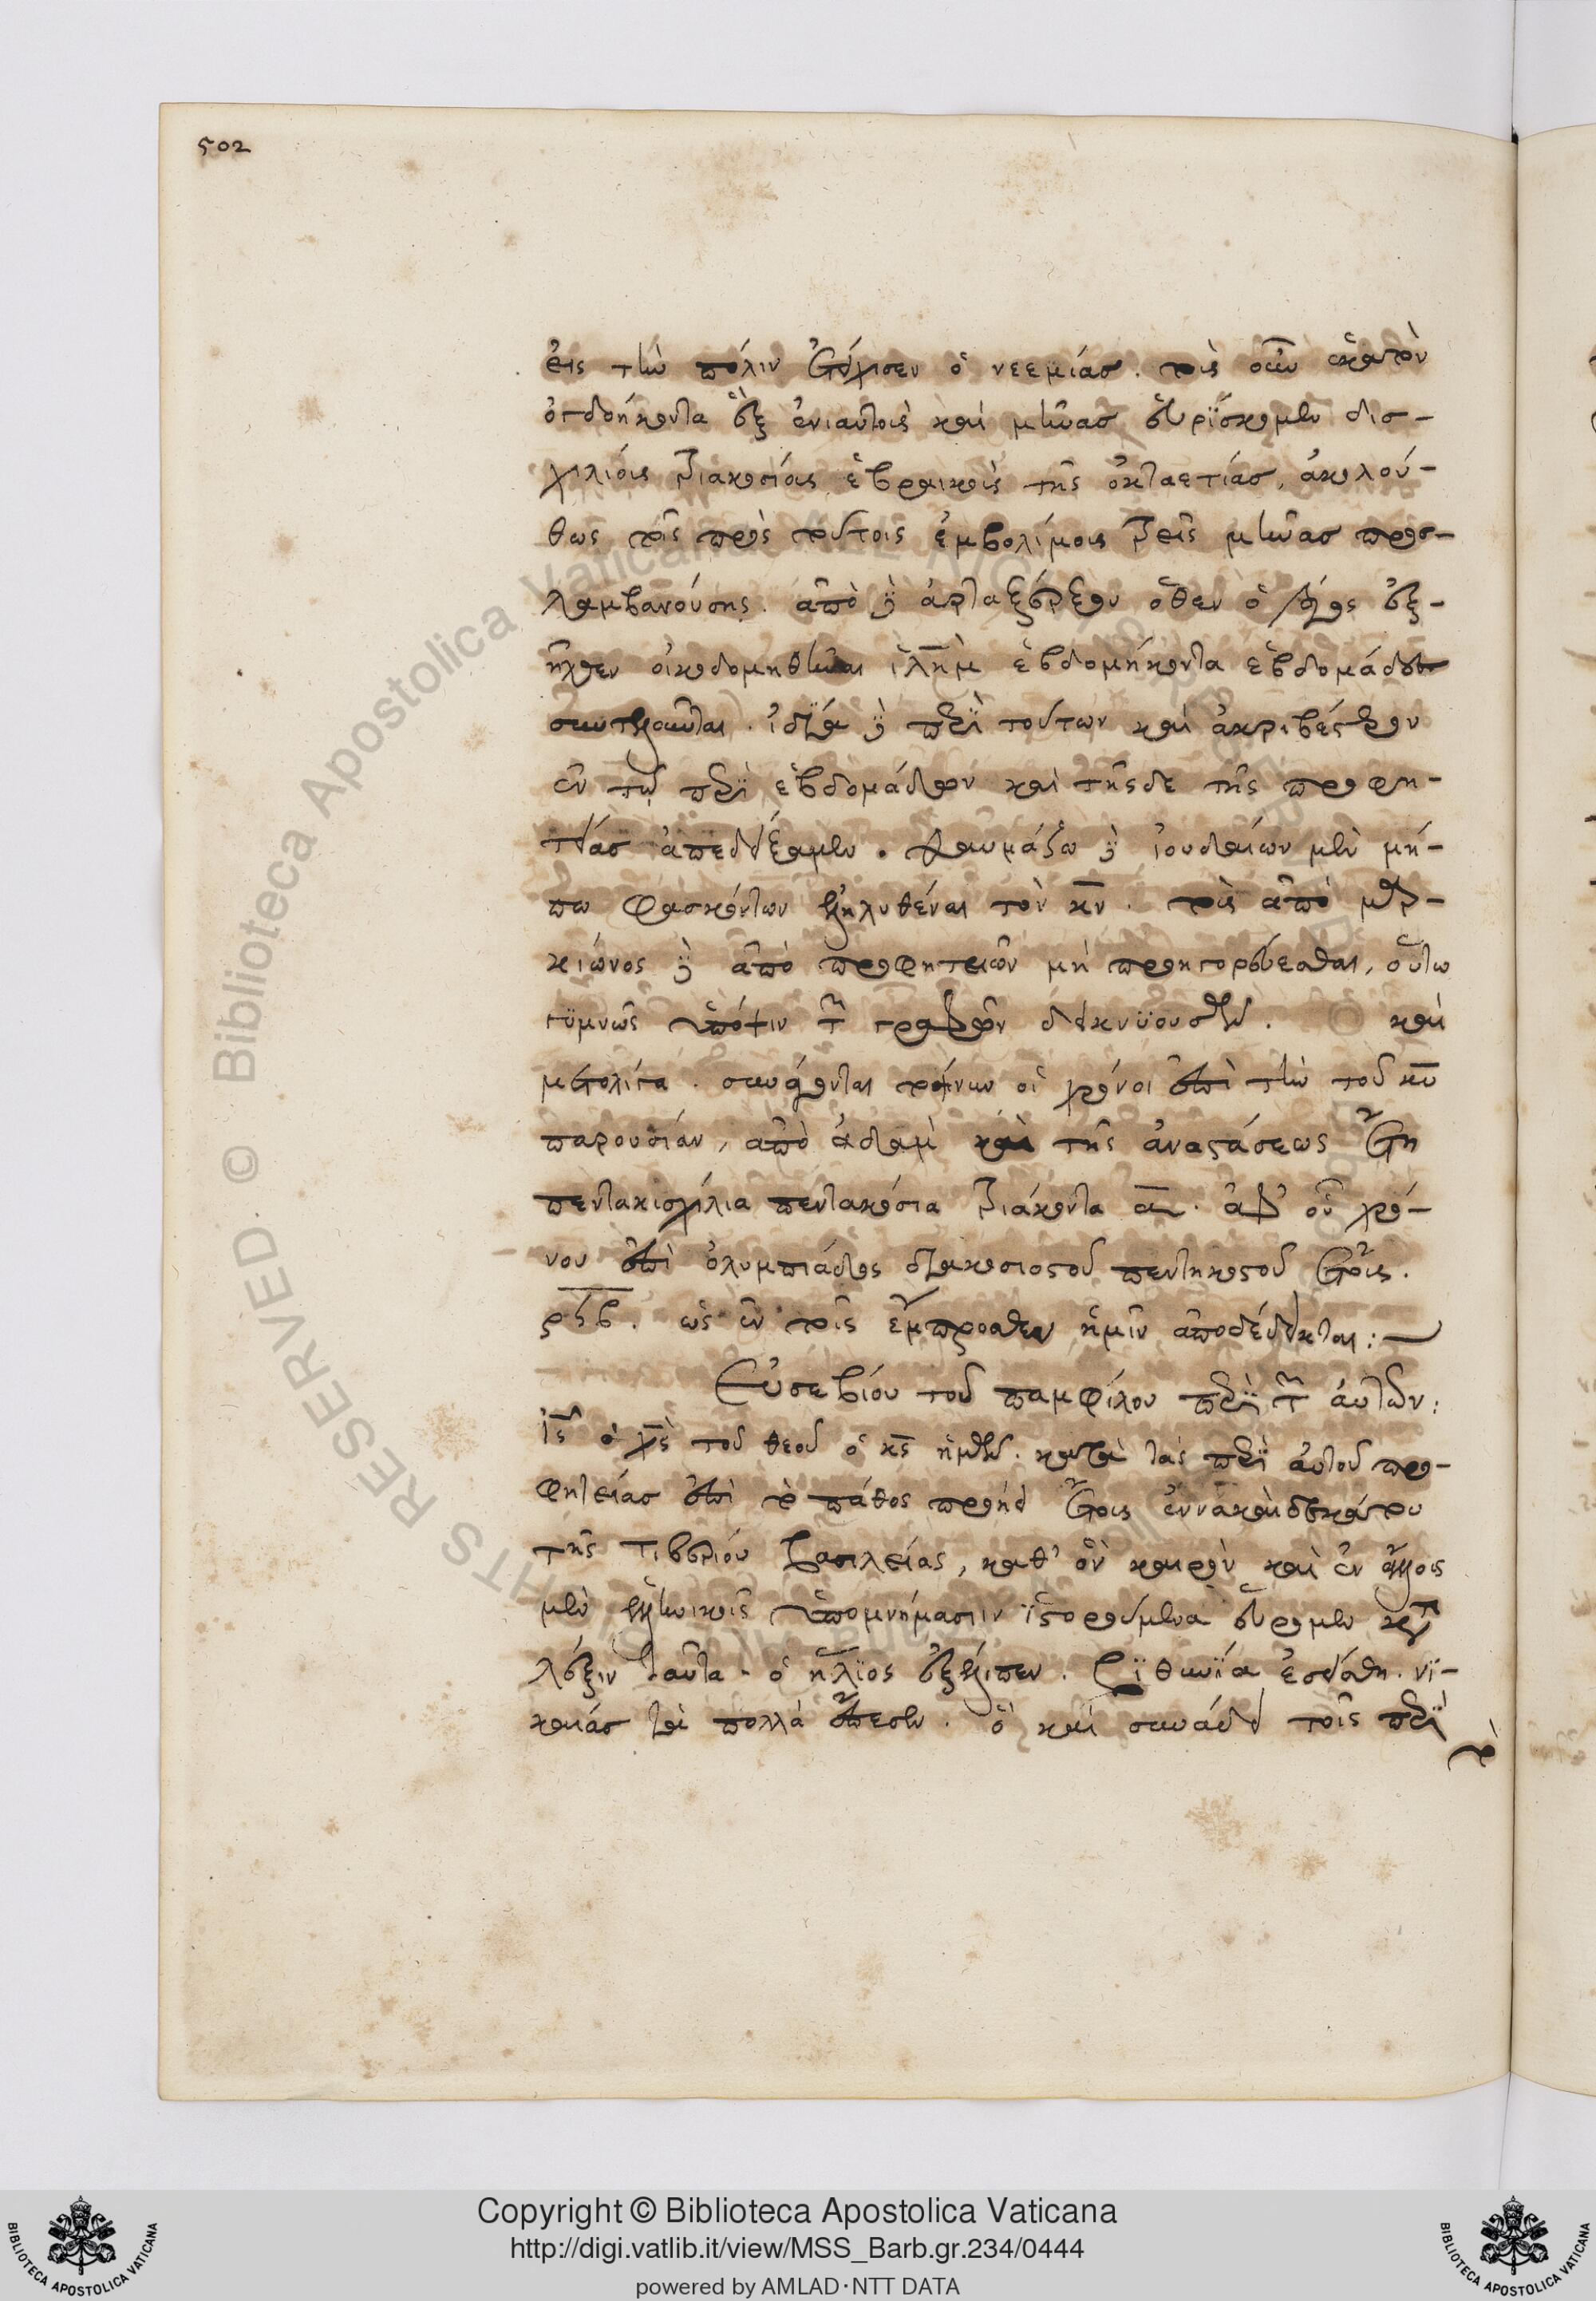 502
εἰς τὴν πόλιν ἐτείχισεν ὁ νεεμίας. τοῖς οὖν ἑκατὸν
ὀγδοήκοντα ἓξ ἐνιαυτοῖς καὶ μῆνας εὑρΐσκομεν δισ-
χιλίοις τριακοσίοις ἑβραικοῖς τῆς ὀκταετίας, ἀκολού-
θως τοῖς πρὸς τούτοις ἐμβολίμοις τρεῖς μῆνας προσ-
λαμβανούσης. ἀπὸ δὲ ἀρταξέρξου ὅθεν ὁ λόγος ἐξ-
ῆλθεν οἰκοδομηθῆναι ἱλὴμ ἑβδομήκοντα ἑβδομάδες
συντελοῦνται. ἰδίᾳ δὲ περὶ τούτων καὶ ἀκριβέστερον
ἐν τῷ περὶ ἑβδομάδων καὶ τῆσδε τῆς προφη-
τείας ἀπεδείξαμεν. θαυμάζω δὲ ἰουδαίων μὲν μή-
πω φασκόντων ἐληλυθέναι τὸν κν. τοῖς ἀπὸ μαρ-
κιώνος δὲ ἀπὸ προφητειῶν μὴ προηγορεῦσθαι, οὕτω
γϋμνῶς ὑπόψιν τῶν γραφῶν δεικνϋουσῶν. καὶ
μετολίγα. συνάγονται τοίνυν οἱ χρόνοι ἐπὶ τὴν τοῦ κυ
παρουσίαν, ἀπὸ ἀδαμὶ καὶ τῆς ἀναστάσεως ἔτη
πεντακισχίλια πεντακόσια τριάκοντα α. ἀφ' οὗ χρό-
νου ἐπὶ ὀλυμπιάδος διακοσιοστοῦ πεντηκοστοῦ ἔτους.
ρϟβ. ὡς ἐν τοῖς ἔμπροσθεν ἡμῖν ἀποδέδεικται:
Εὐσεβίου τοῦ παμφίλου περὶ τῶν αὐτῶν:
ἰς ὁ χς τοῦ θεοῦ ὁ κς ἡμῶν. κατὰ τὰς περὶ αὐτοῦ προ-
φητείας ἐπὶ τὸ πάθος προῄει ἔτους ἐννακαιδεκάτου
τῆς τιβερίου βασιλείας, καθ' ὃν καιρὸν καὶ ἐν ἄλλοις
μὲν ἑλληνικοῖς ὑπομνήμασιν ϊστορούμενα εὕρομεν κατὰ
λέξιν ταῦτα. ὁ ἥλϊος ἐξέλιπεν. βϊθυνΐα ἐσείσθη. νϊ-
καιάς τὰ πολλὰ ἔπεσεν. ὃ καὶ συνάδει τοῖς περὶ
τὸ
Copyright © Biblioteca Apostolica Vaticana
http://digi.vatlib.it/view/MSS_Barb.gr.234/0444
powered by AMLAD·NTT DATA